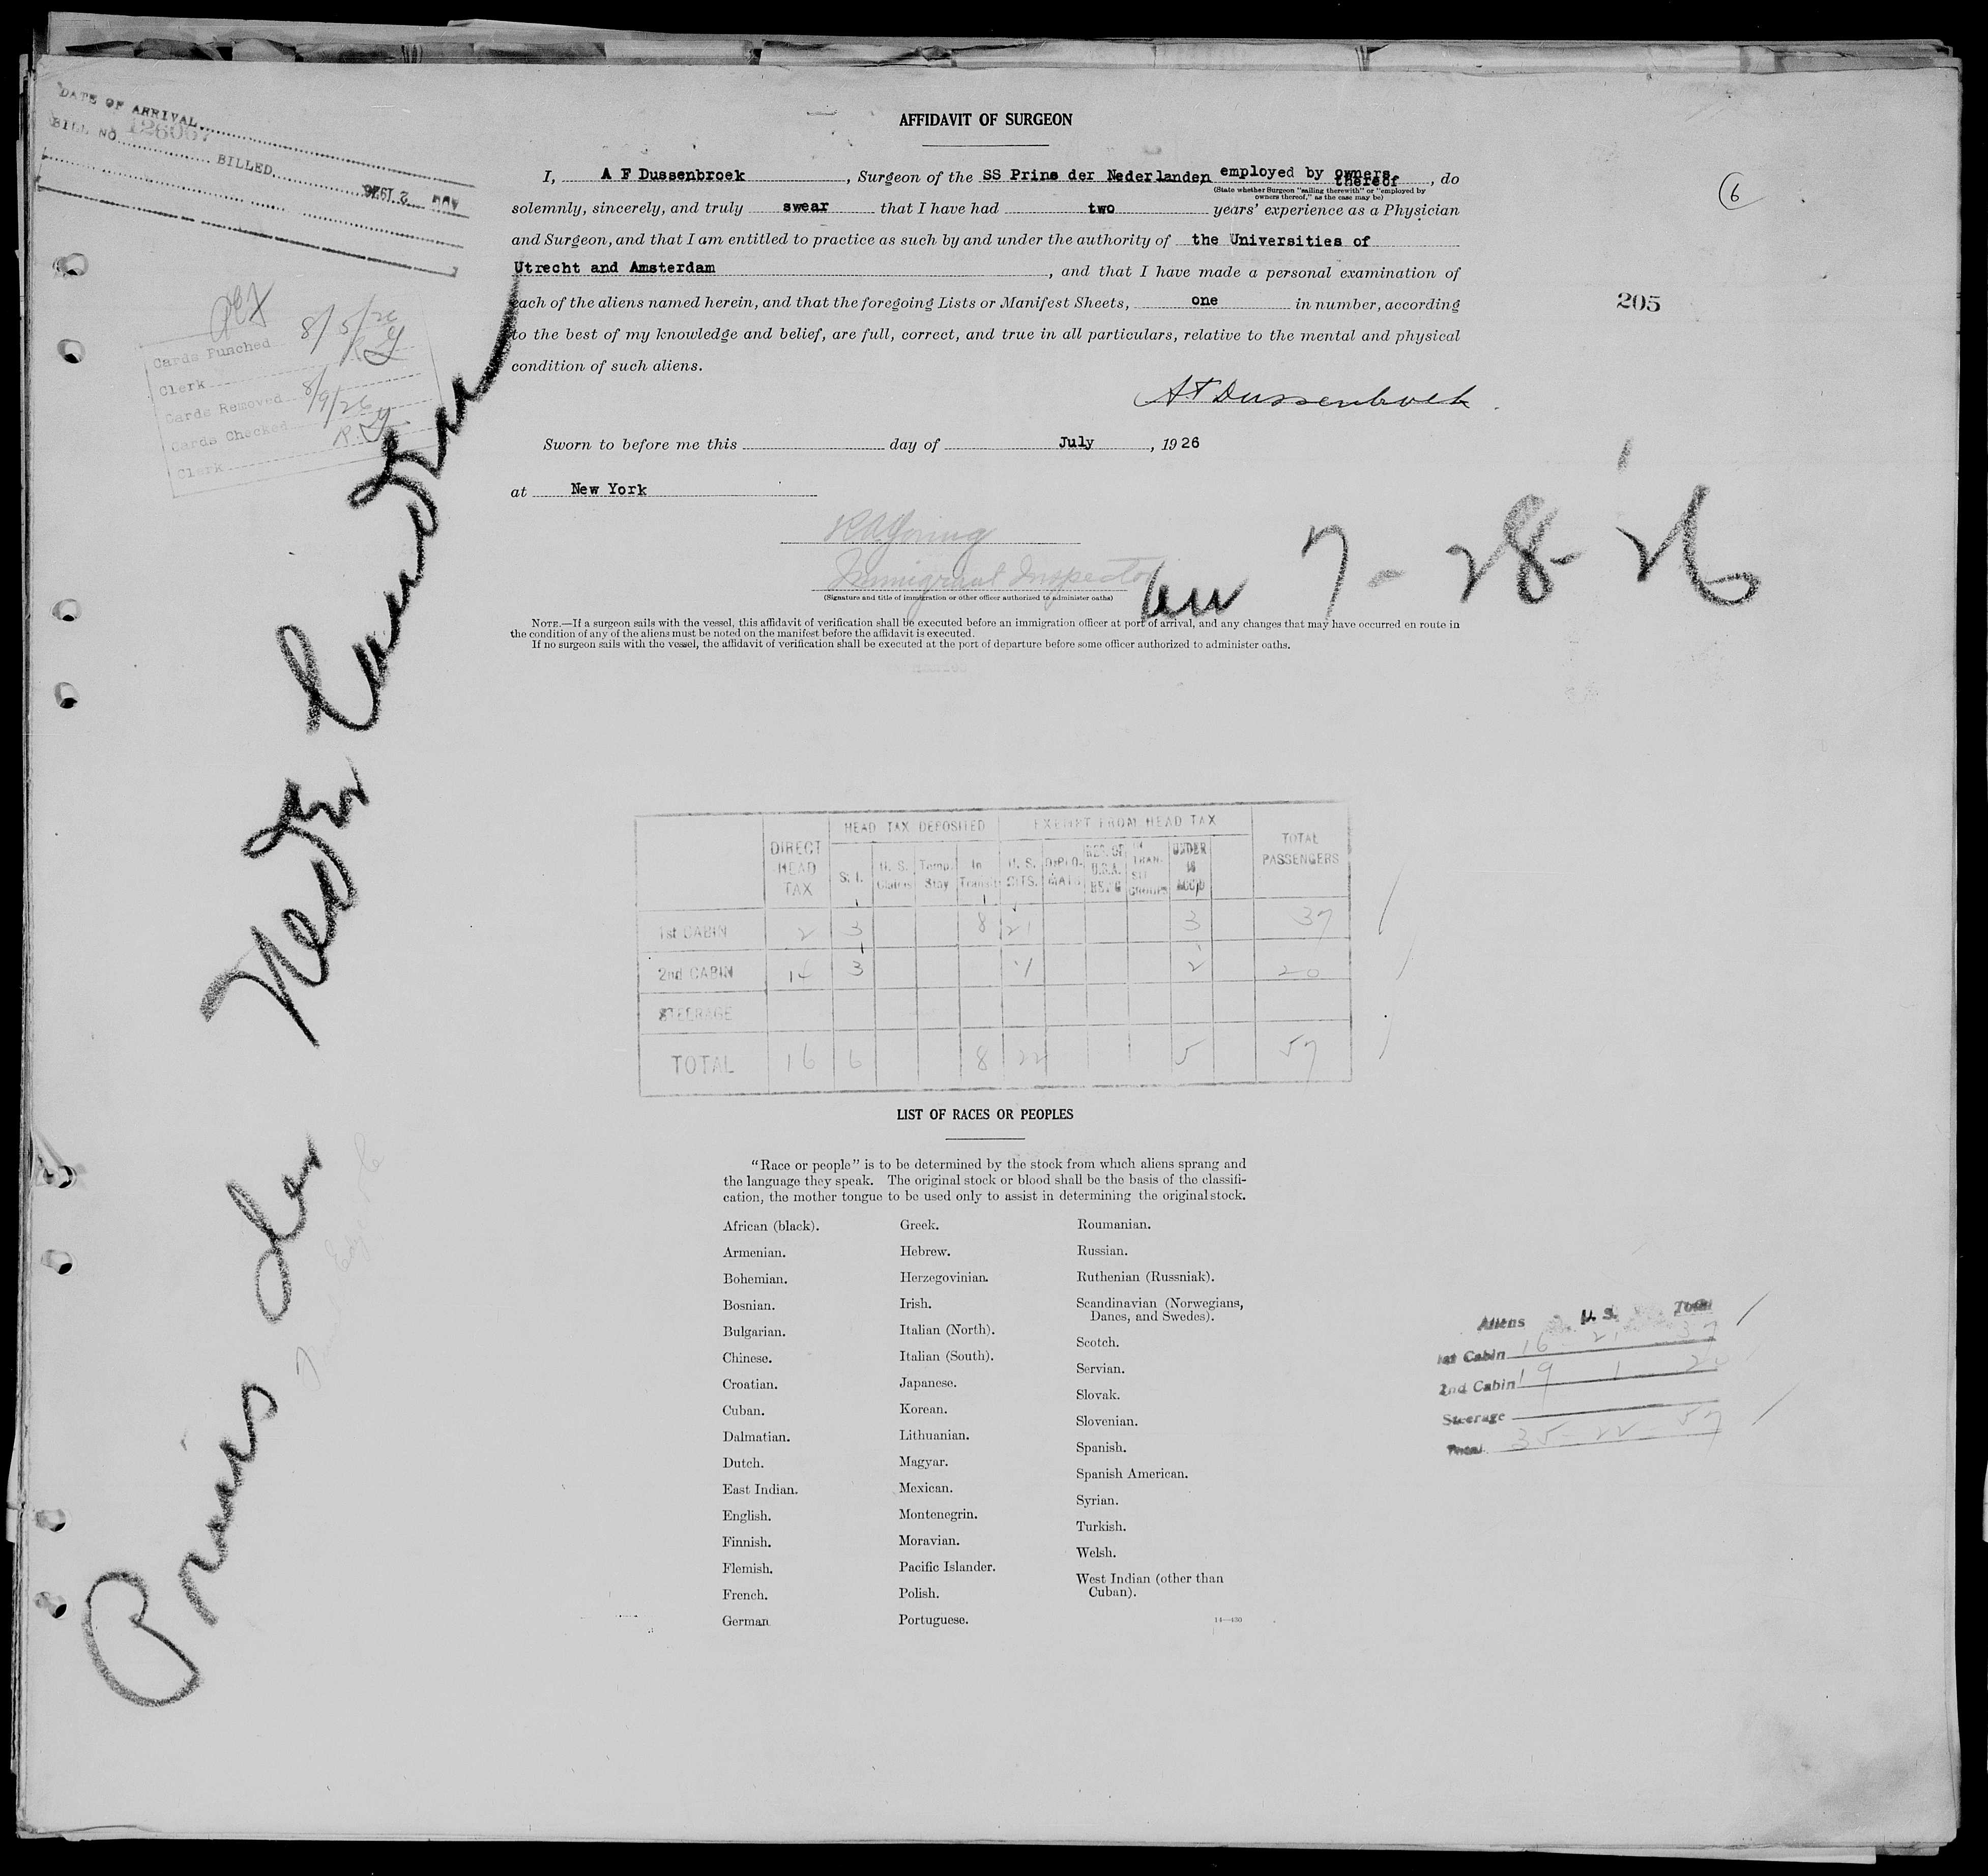 DATE OF ARRIVAL
BILL NO. 126067 BILLED
AUG 2 1926
Cards Punched 8/5/26
Clerk
Cards Removed 8/9/26
Cards Checked
Clerk
Prins der Nederlanden
AFFIDAVIT OF SURGEON
I, A F Dussenbroek, Surgeon of the SS Prins der Nederlanden employed by owners thereof, do
(State whether Surgeon "sailing therewith" or "employed by
owners thereof," as the case may be)
solemnly, sincerely, and truly swear that I have had two years' experience as a Physician
and Surgeon, and that I am entitled to practice as such by and under the authority of the Universities of
Utrecht and Amsterdam, and that I have made a personal examination of
each of the aliens named herein, and that the foregoing Lists or Manifest Sheets, one in number, according
to the best of my knowledge and belief, are full, correct, and true in all particulars, relative to the mental and physical
condition of such aliens.
6
205
A F Dussenbroek
Sworn to before me this day of July, 1926
at New York
Immigrant Inspector
(Signature and title of immigration or other officer authorized to administer oaths)
7-28-26
NOTE.—If a surgeon sails with the vessel, this affidavit of verification shall be executed before an immigration officer at port of arrival, and any changes that may have occurred en route in
the condition of any of the aliens must be noted on the manifest before the affidavit is executed.
If no surgeon sails with the vessel, the affidavit of verification shall be executed at the port of departure before some officer authorized to administer oaths.
HEAD TAX DEPOSITED EXEMPT FROM HEAD TAX
DIRECT HEAD TAX S. I. U. S. Claims Temp. Stay In Transit U. S. CITS. DIPLOMATS RES. OF U.S.A. RET'G IN TRANSIT GROUPS UNDER 16 ACC'D TOTAL PASSENGERS
1st CABIN 2 3 8 21 3 37
2nd CABIN 14 3 1 2 20
STEERAGE
TOTAL 16 6 8 22 5 57
LIST OF RACES OR PEOPLES
"Race or people" is to be determined by the stock from which aliens sprang and
the language they speak. The original stock or blood shall be the basis of the classifi-
cation, the mother tongue to be used only to assist in determining the original stock.
African (black).
Armenian.
Bohemian.
Bosnian.
Bulgarian.
Chinese.
Croatian.
Cuban.
Dalmatian.
Dutch.
East Indian.
English.
Finnish.
Flemish.
French.
German
Greek.
Hebrew.
Herzegovinian.
Irish.
Italian (North).
Italian (South).
Japanese.
Korean.
Lithuanian.
Magyar.
Mexican.
Montenegrin.
Moravian.
Pacific Islander.
Polish.
Portuguese.
Roumanian.
Russian.
Ruthenian (Russniak).
Scandinavian (Norwegians,
Danes, and Swedes).
Scotch.
Servian.
Slovak.
Slovenian.
Spanish.
Spanish American.
Syrian.
Turkish.
Welsh.
West Indian (other than
Cuban).
14—430
Aliens U. S. Total
1st Cabin 16 21 37
2nd Cabin 19 1 20
Steerage
Total 35 - 22 - 57